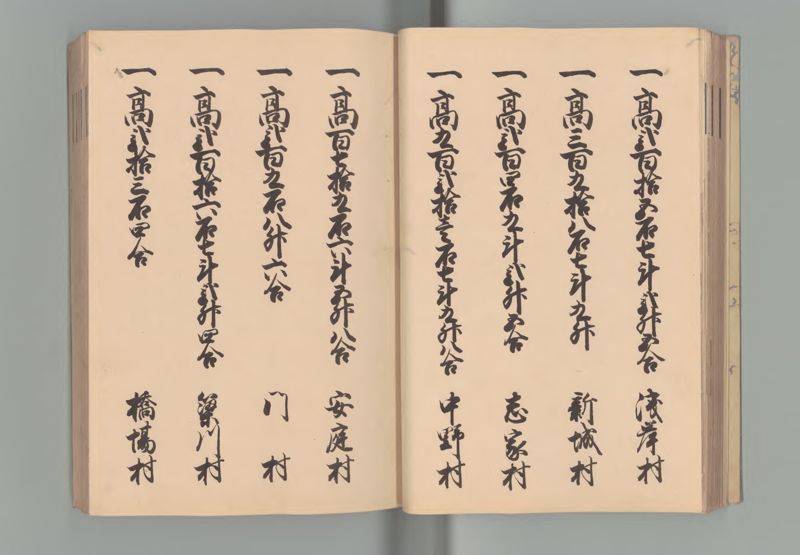 一 高弐百拾五石七斗弐升五合 浅岸村
一 高三百九拾八石七斗九升 新城村
一 高弐百四石九斗弐升五合 志家村
一 高九百弐拾壱石七斗九升八合 中野村
一 高百七拾九石六斗五升八合 安庭村
一 高弐百九石八升六合 門村
一 高弐百拾六石七斗弐升四合 簗川村
一 高弐拾三石四合 橋場村